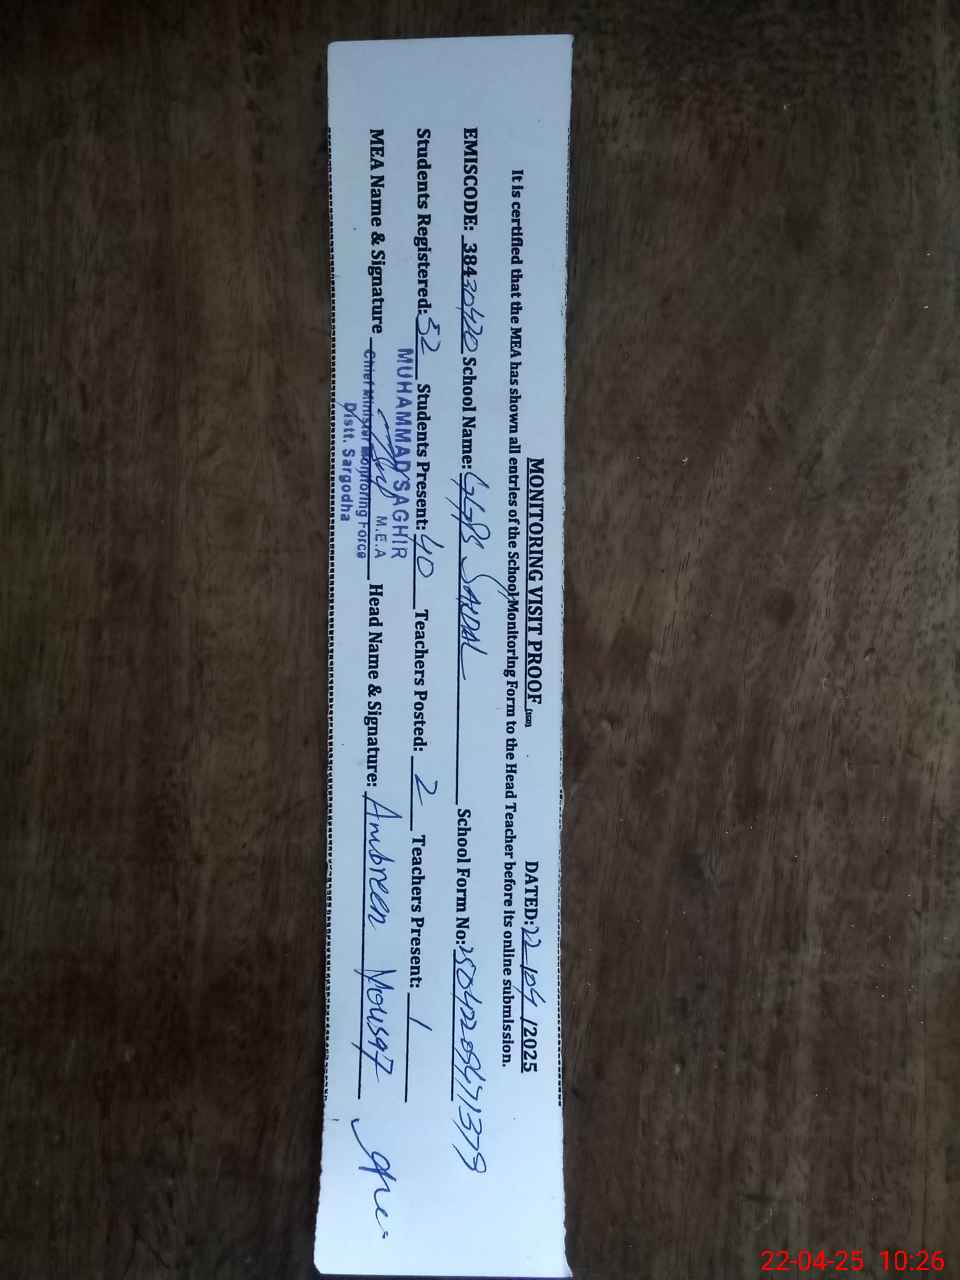 MONITORING VISIT PROOF (SGD) DATED: 22/04/2025
It is certified that the MEA has shown all entries of the School Monitoring Form to the Head Teacher before its online submission.
EMISCODE: 38430420 School Name: School Form No:
Students Registered: 52 Students Present: 40 Teachers Posted: 2 Teachers Present: 1
MUHAMMAD SAGHIR
MEA Name & Signature M.E.A Head Name & Signature: Ambreen
Chief Minister Monitoring Force
Distt. Sargodha
22-04-25 10:26